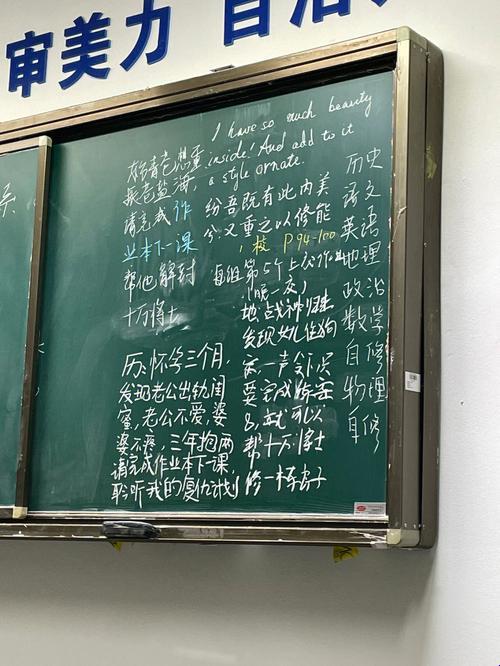 审美力 自
I have so much beauty
inside! And add to it
a style ornate.
纷吾既有此内美
兮又重之以修能
请完成作
业本下一课
帮他解封
十万将士
校 P94-100
每组第5个上交作业
地:战神归来
发现女儿住狗
窝,一声令
要完成
8,就可以
帮十万将士
修一栋房子
历:怀孕三个月,
发现老公出轨闺
蜜,老公不爱,婆
婆不疼,三年抱两
请完成作业本下一课,
聆听我的复仇计划
历史
语文
英语
地理
政治
数学
自修
物理
自修